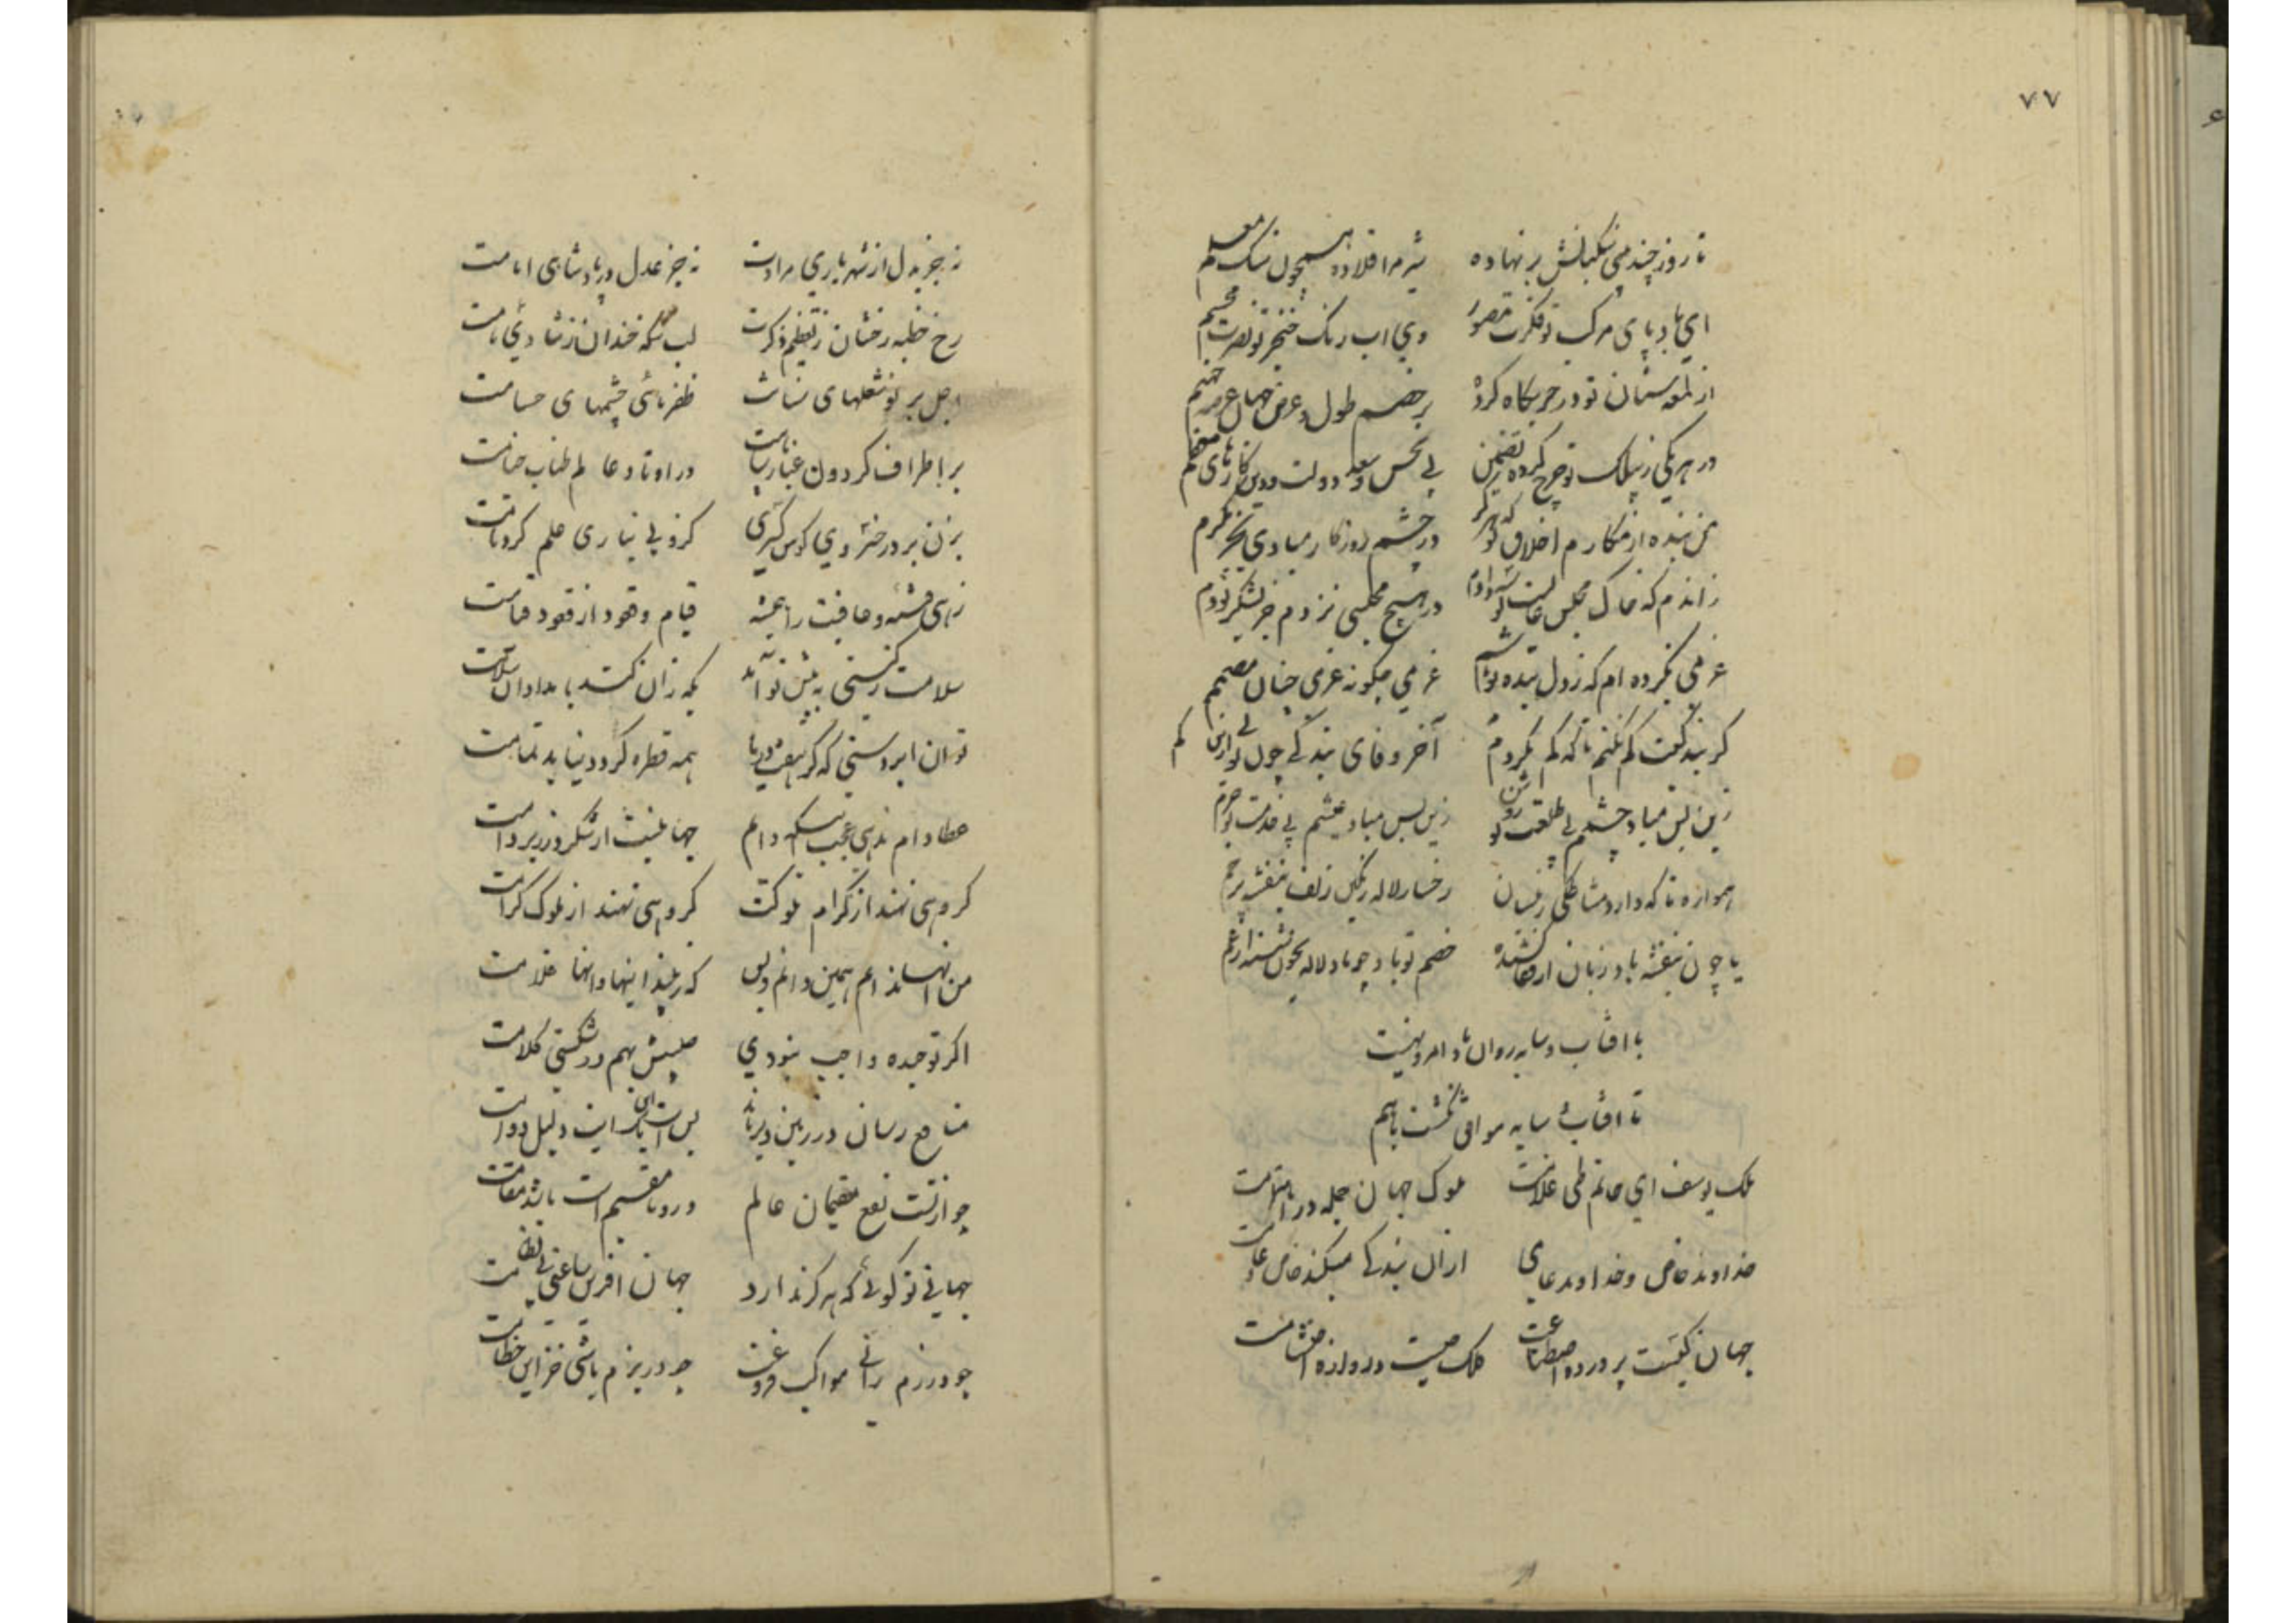 ٧٧
تا روز چند می نگبانش بر نهاده شیر مرا قلاده همچون سک معلم
ای باد پای مرکب تو فکرت مصور وی اب رنک خنجر تو نصرت مجسم
از لمعه سنان تو در حربکاه کرده بر خصم طول و عرض جهان عرصه جهنم
در هر یکی زپیلک تو چرخ کرده تضمین بی نحس و سعد دولت و دین کارهای معظم
من بنده از مکارم اخلاق تو که هرکز در چشم روزکار مبادی بجز مکرم
زاندم که خاک مجلس عالیت بوسه دادم در هیچ مجلسی نزدم جز بشکر تو دم
عزمی بکرده ام که زدل بنده تو باشم عزمی چکونه عزمی چنان مصمم
کر بندکیت کم نکنم تا که کم نکردم آخر وفای بندکی چون تویی ازین کم
زین پس مباد چشمم بی طلعت تو روشن زین پس مباد عیشم بی خدمت تو خرم
همواره تا که دارد مشاطکی زنسان رخسار لاله رنکین زلف بنفشه پر خم
یا چون بنفشه باد زبان از قفا کشیده خصم تو باد چو باد لاله بخون شسته از غم
با افتاب و سایه روان باد امر و نهیت
تا افتاب و سایه موافق نکشت باهم
ملک یوسف ای حاتم طی غلامت ملوک جهان جمله در اهتمامت
خداوند خاص و خداوند عامی ازان بندکی میکند خاص و عامت
جهان کیست پرورده اصطناعت فلک چیست دروازه احتشامت
نه جز بذل از شهریاری مرادت نه جز عدل در پادشاهی امامت
رخ خطبه رخشان ز تعظیم ذکرت لب سکه خندان ز شادی نامت
اجل پرتو شعلهای سنانت ظفر ماهی چشمهای حسامت
بر اطراف کردون غبار سپاهت در اوتاد عالم طناب خیامت
بزن نیزه در خسروی کوس کبری کزو بی نیازی علم کرد نامت
زهی فتنه و عافیت را همیشه قیام و قعود از قعود و قیامت
سلامت زکیتی به پیش تو آمد که زان کشد بامدادان سلامت
تو ان ابر دستی که کر هفت دریا همه قطره کردد نیاید تمامت
عطا وام ندهی عجب اینکه دایم جهانیست از شکر در زیر وامت
کروهی نهند از کرام ملوکت کروهی نهند از ملوک کرامت
من انها ندانم همین دانم و بس که زیبد اینها و انها غلامت
اکر توجیده واجب نبودی صلیبش بهم در شکستی کلامت
منافع رسان در زمین دیر ماند بس است این یک ایت دلیل دوامت
چو از تست نفع مقیمان عالم درو تا مقیم است باشد مقامت
جهانی تو کوئی که هرکز ندارد جهان افرین ساعتی بی نظامت
چو در رزم رانی مواکب فروغت چو در بزم باشی خزاین حطامت